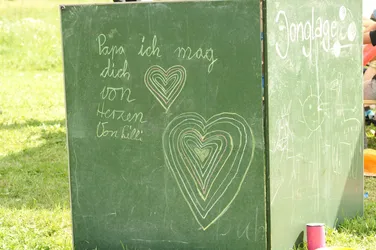 Papa ich mag
dich
von
Herzen
Von Lilli
Jonglage